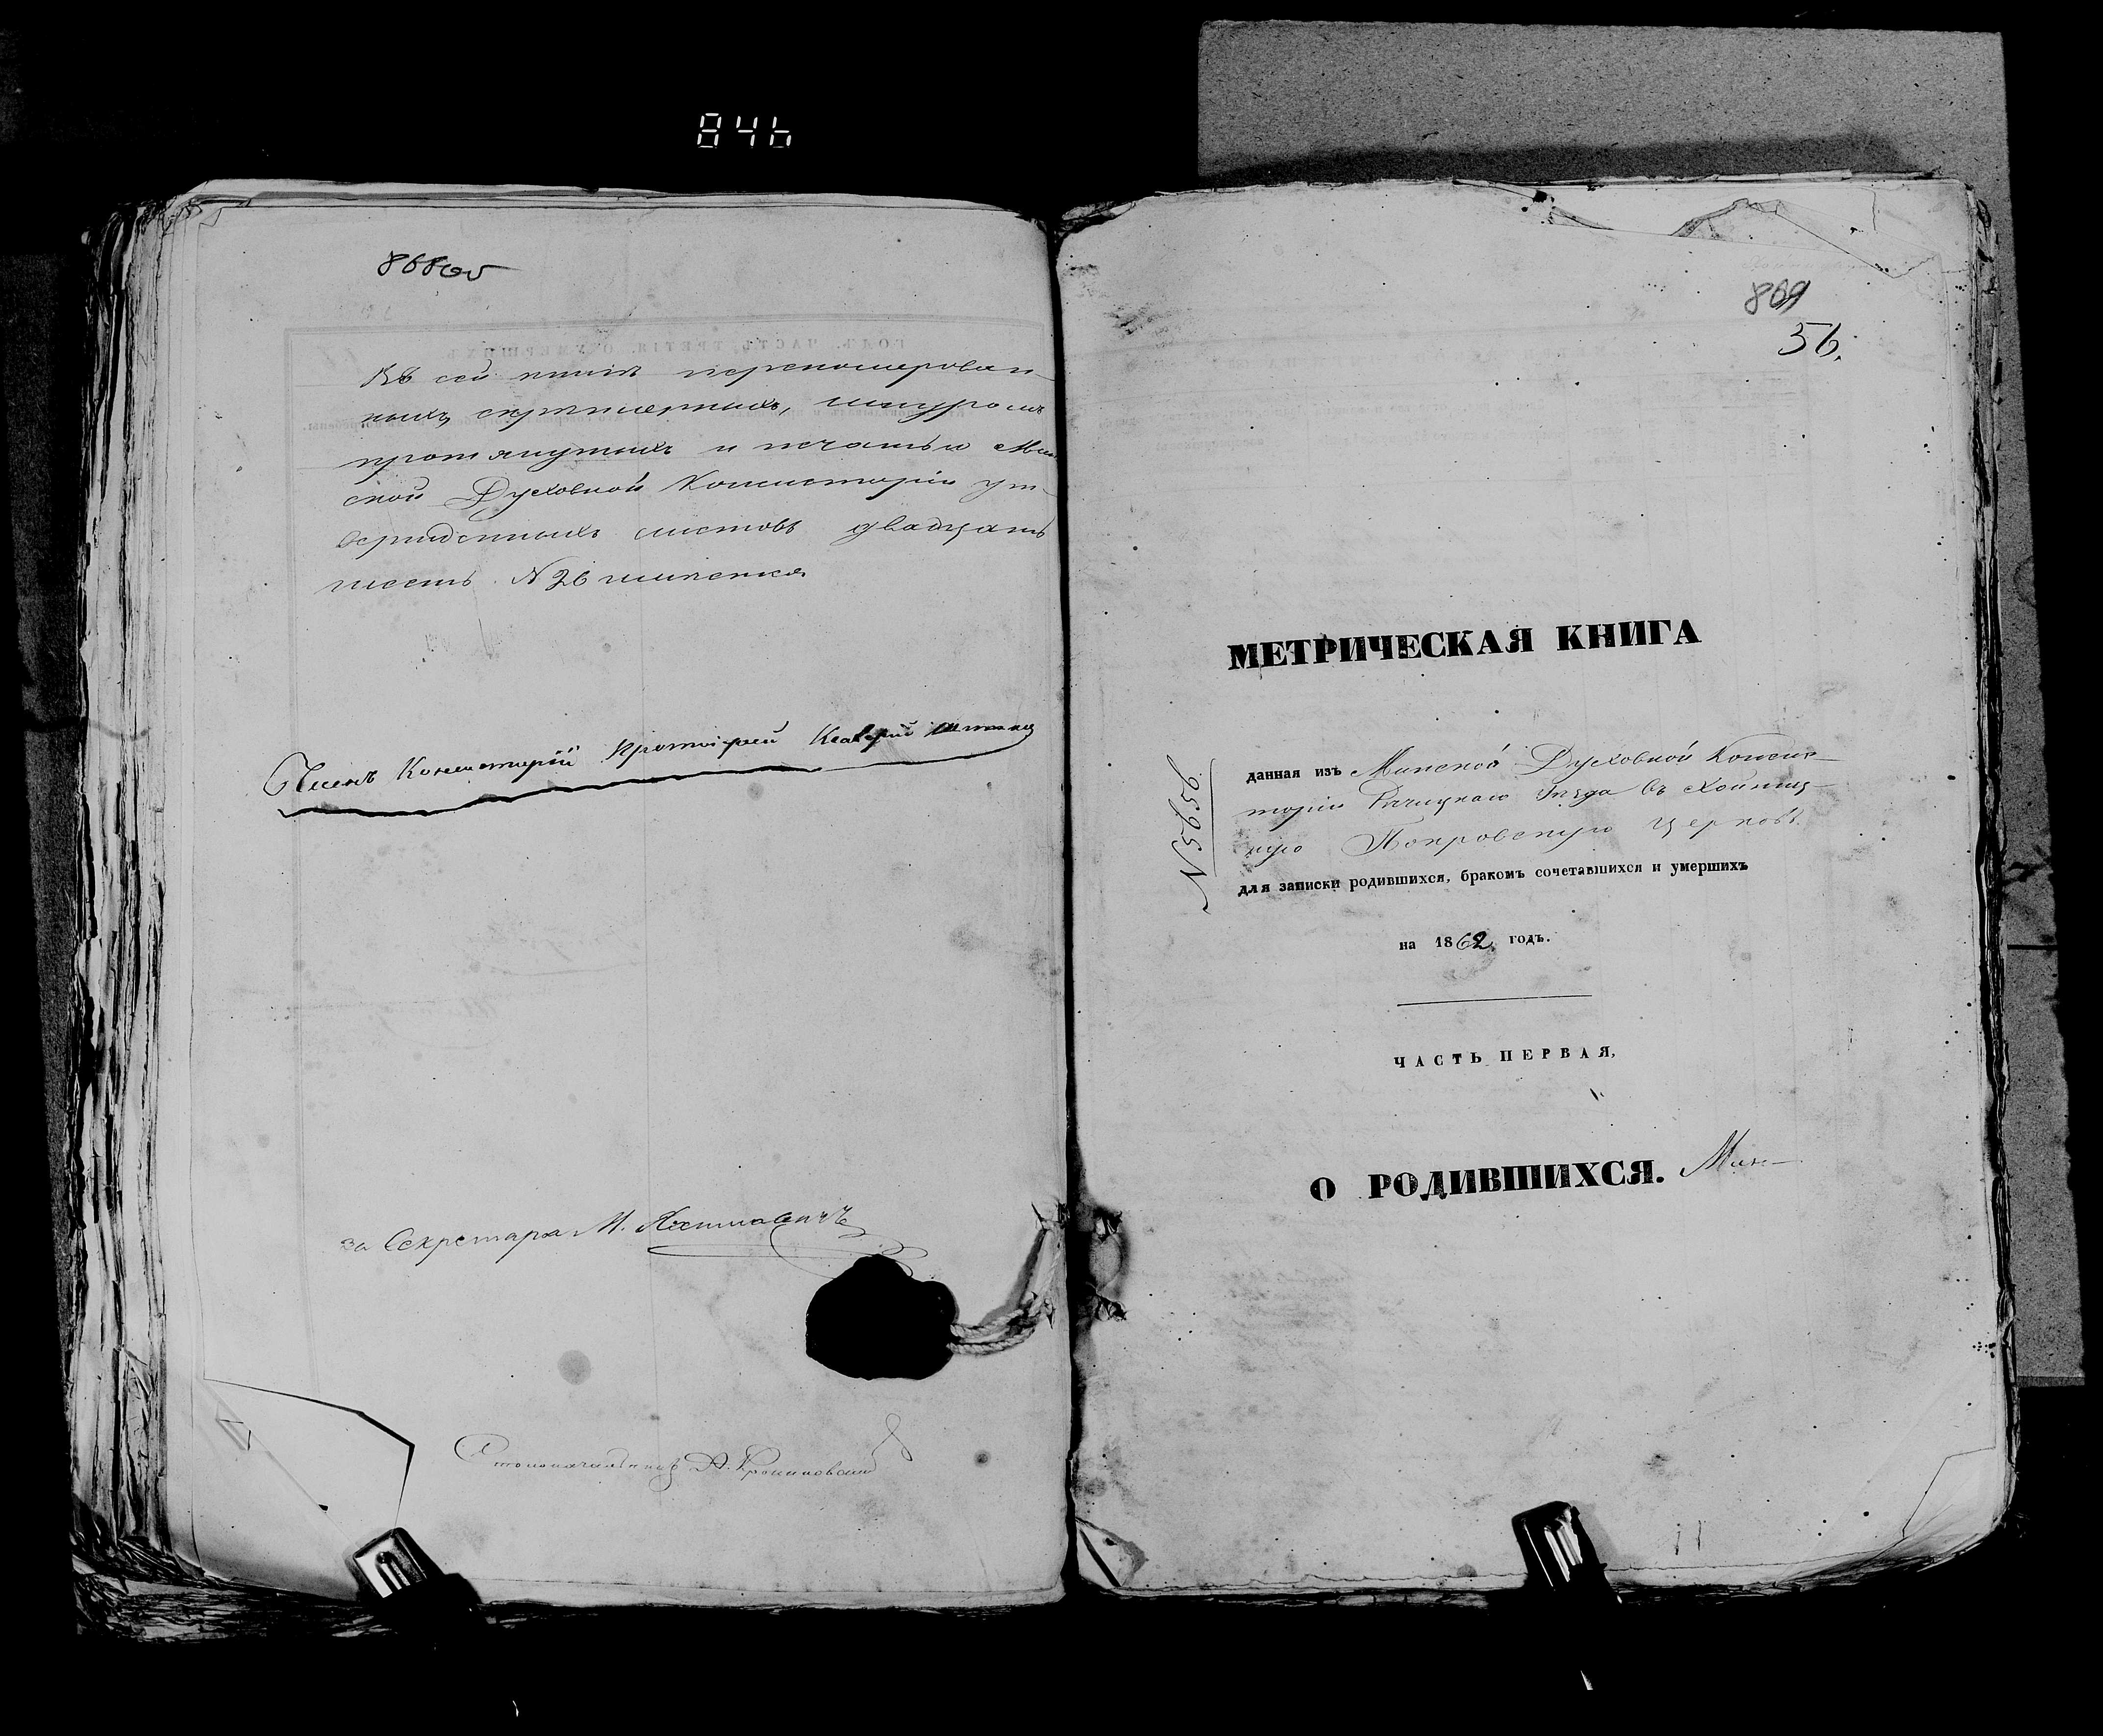 846
868об
Въ сей книгѣ перенумерован-
ныхъ, скрѣпленныхъ, шнуромъ
протянутыхъ и печатью Мин
ской Духовной Консисторіи ут-
вержденныхъ листовъ двадцать
шесть N 26
Членъ Консисторіи Протоіерей
За Секретаря М.
Столоначальникъ
869
56.
МЕТРИЧЕСКАЯ КНИГА
N 5656.
данная изъ Минской Духовной Консис-
торіи Рѣчицкаго Уѣзда въ Хойниц-
кую Покровскую церковь
для записки родившихся, бракомъ сочетавшихся и умершихъ
на 1862 годъ.
ЧАСТЬ ПЕРВАЯ,
О РОДИВШИХСЯ. Мин-